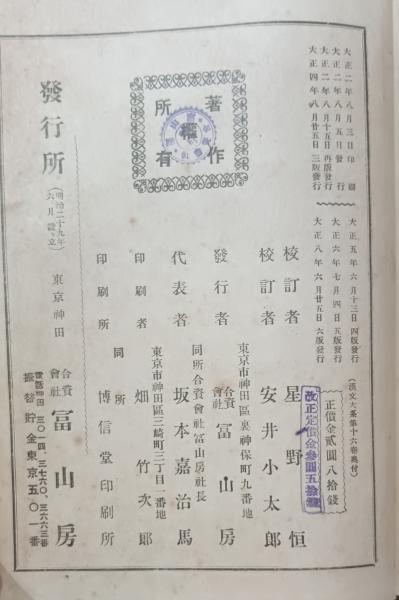 大正二年八月三日印刷
大正二年八月五日發行
大正二年八月十五日再版發行
大正四年八月廿五日三版發行
大正五年六月十三日四版發行
大正六年七月四日五版發行
大正八年六月廿五日六版發行
(漢文大系第十六卷奧付)
正價金貳圓八拾錢
改正定價金參圓五拾錢
著作權所有
校訂者 星野恒
校訂者 安井小太郎
東京市神田區裏神保町九番地
發行者 合資會社 冨山房
同所合資會社冨山房社長
代表者 坂本嘉治馬
東京市神田區三崎町三丁目一番地
印刷者 畑竹次郎
同所
印刷所 博信堂印刷所
發行所 (明治二十九年六月設立) 東京神田 合資會社 冨山房
電話神田 三〇一四、三七六〇、三六六三番
振替貯金東京五〇一番